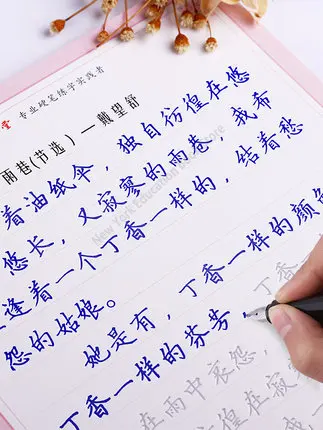 专业硬笔练字实践者
雨巷(节选)—戴望舒
着油纸伞，独自彷徨在悠
悠长，又寂寥的雨巷，我希
逢着一个丁香一样的，结着愁
怨的姑娘。她是有，丁香一样的颜色
丁香一样的芬芳，丁香
在雨中哀怨，
彷徨在寂寥
New York Education Book Store